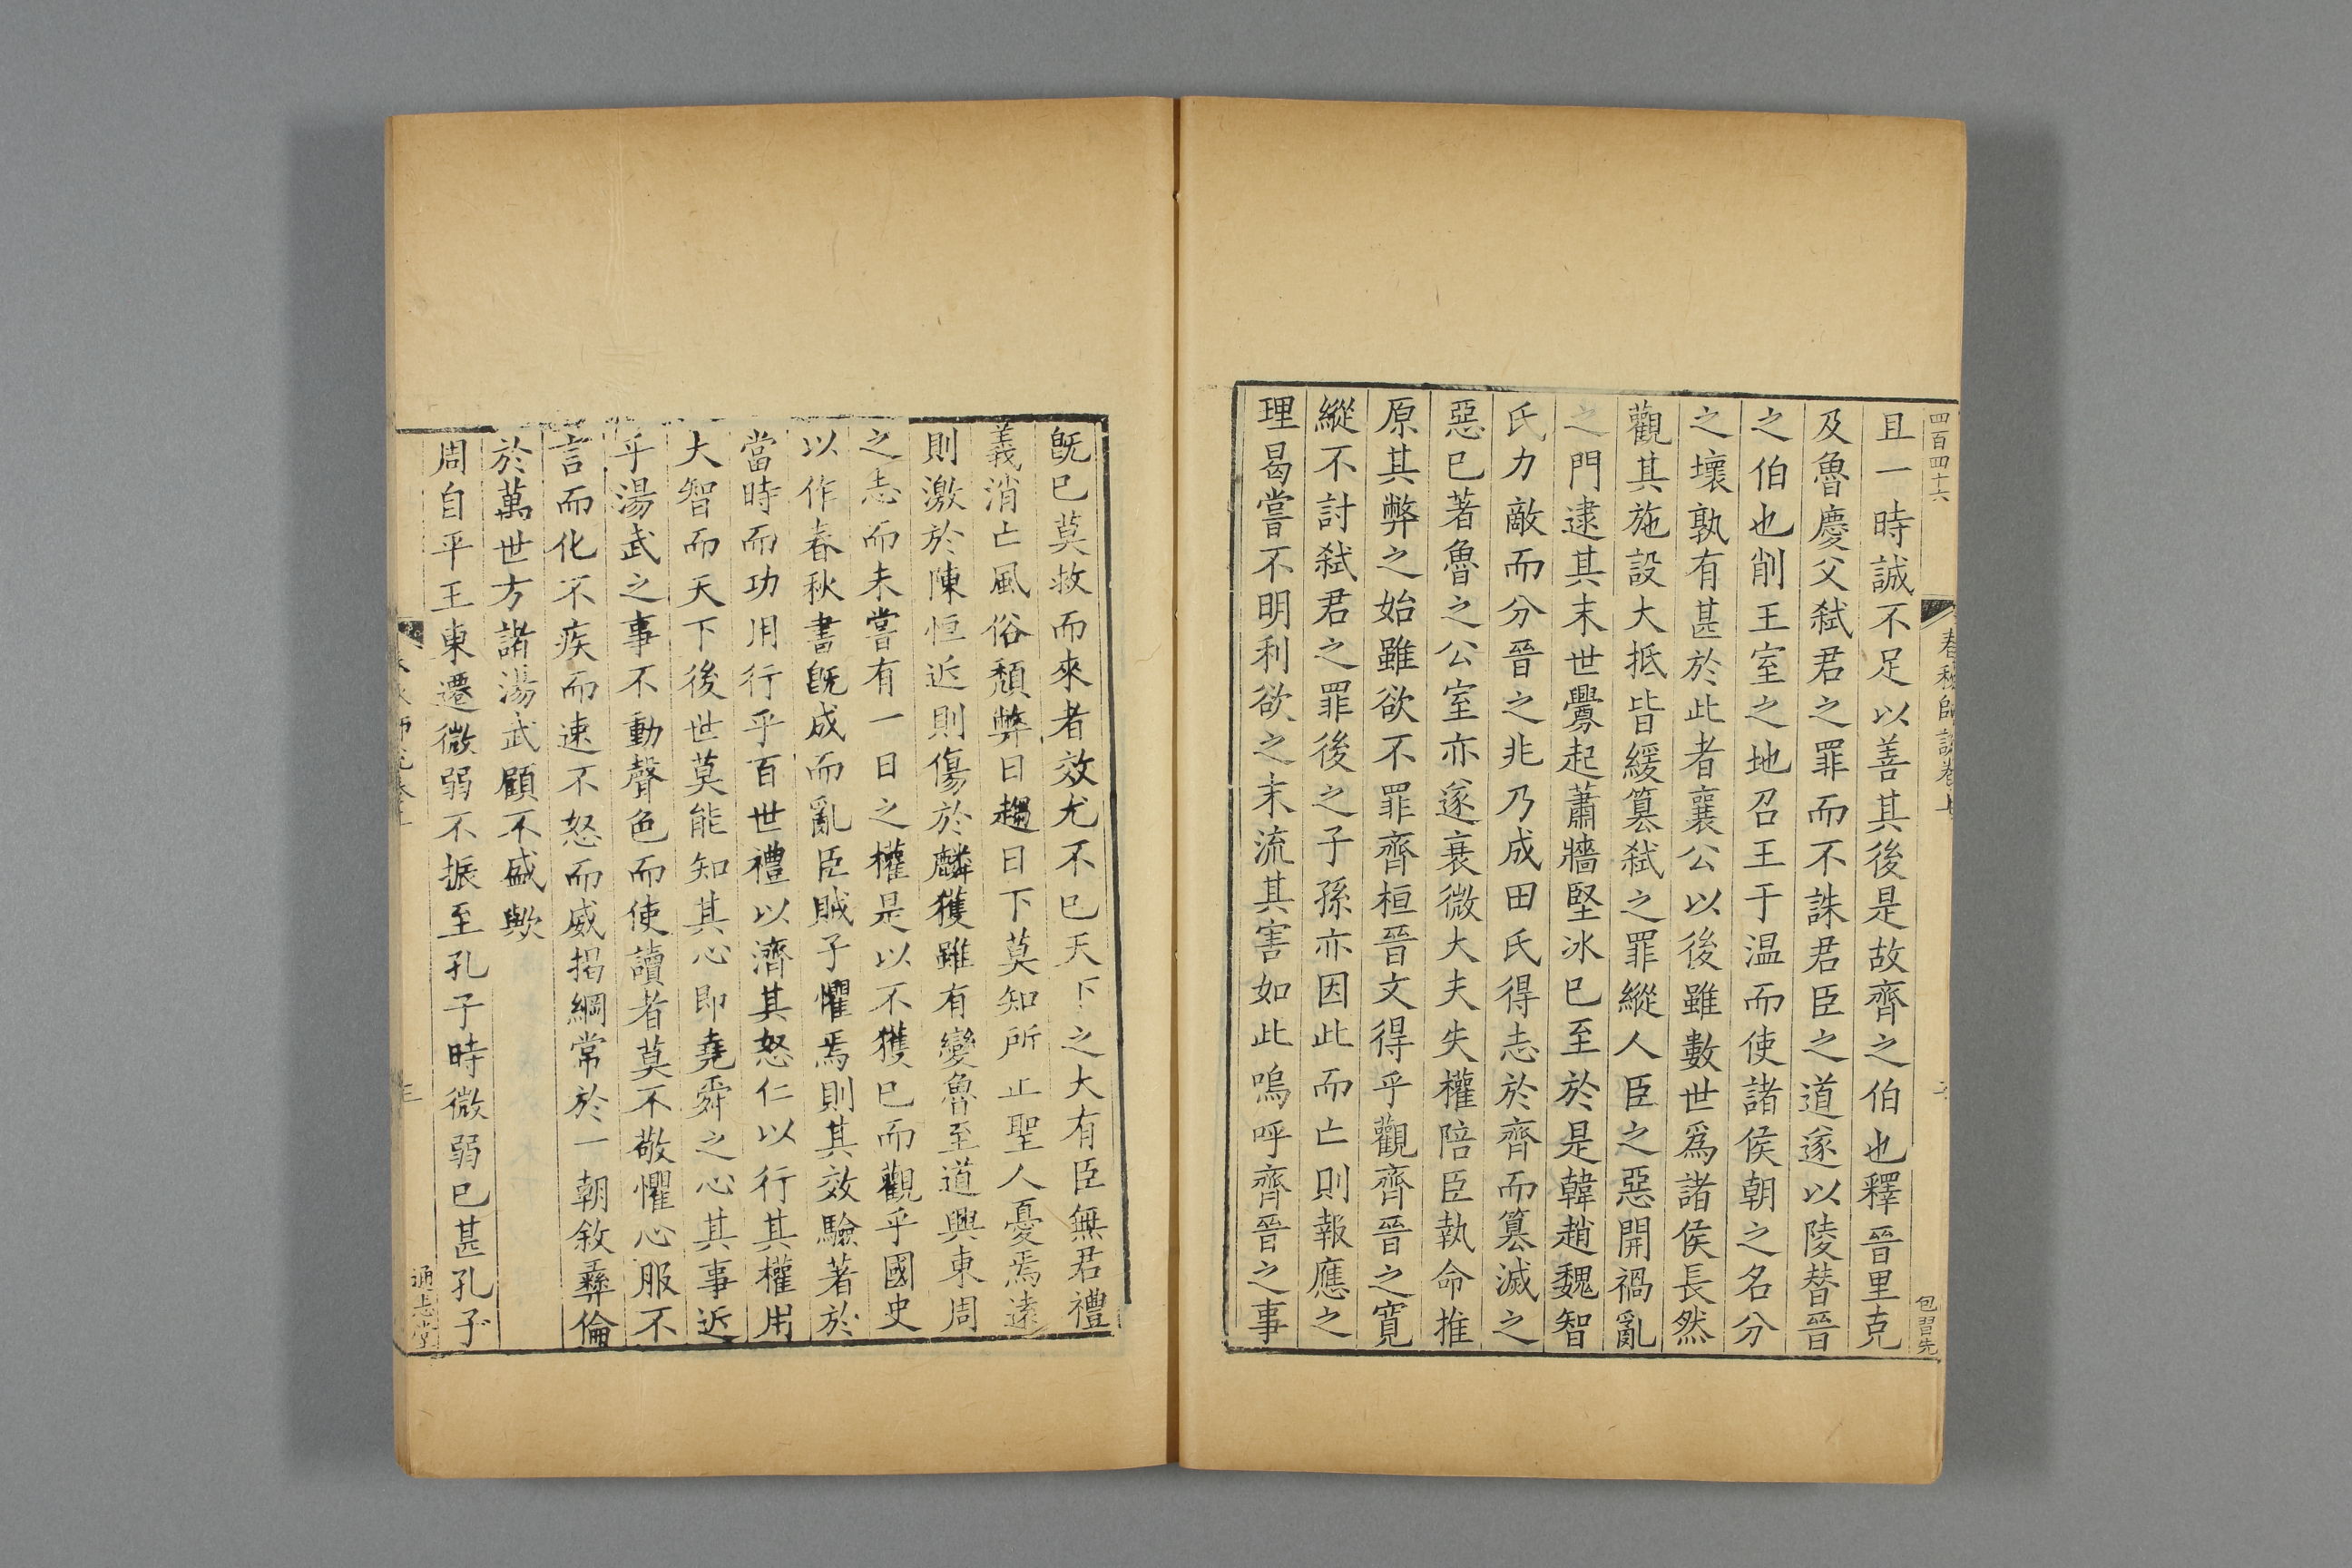 四百四十六
春秋師說卷上
包習先
且一時誠不足以善其後是故齊之伯也釋晉里克
及魯慶父弑君之罪而不誅君臣之道遂以陵替晉
之伯也削王室之地召王于温而使諸侯朝之名分
之壞孰有甚於此者襄公以後雖數世爲諸侯長然
觀其施設大抵皆緩簒弑之罪縱人臣之惡開禍亂
之門逮其末世釁起蕭牆堅冰已至於是韓趙魏智
氏力敵而分晉之兆乃成田氏得志於齊而簒滅之
惡已著魯之公室亦遂衰微大夫失權陪臣執命推
原其弊之始雖欲不罪齊桓晉文得乎觀齊晉之寛
縱不討弑君之罪後之子孫亦因此而亡則報應之
理曷嘗不明利欲之末流其害如此嗚呼齊晉之事
既已莫救而來者效尤不已天下之大有臣無君禮
義消亡風俗頹弊日趨日下莫知所止聖人憂焉遠
則激於陳恒近則傷於麟獲雖有變魯至道興東周
之志而未嘗有一日之權是以不獲已而觀乎國史
以作春秋書既成而亂臣賊子懼焉則其效驗著於
當時而功用行乎百世禮以濟其怒仁以行其權用
大智而天下後世莫能知其心即堯舜之心其事近
乎湯武之事不動聲色而使讀者莫不敬懼心服不
言而化不疾而速不怒而威揭綱常於一朝敘彝倫
於萬世方諸湯武顧不盛歟
周自平王東遷微弱不振至孔子時微弱已甚孔子
通志堂